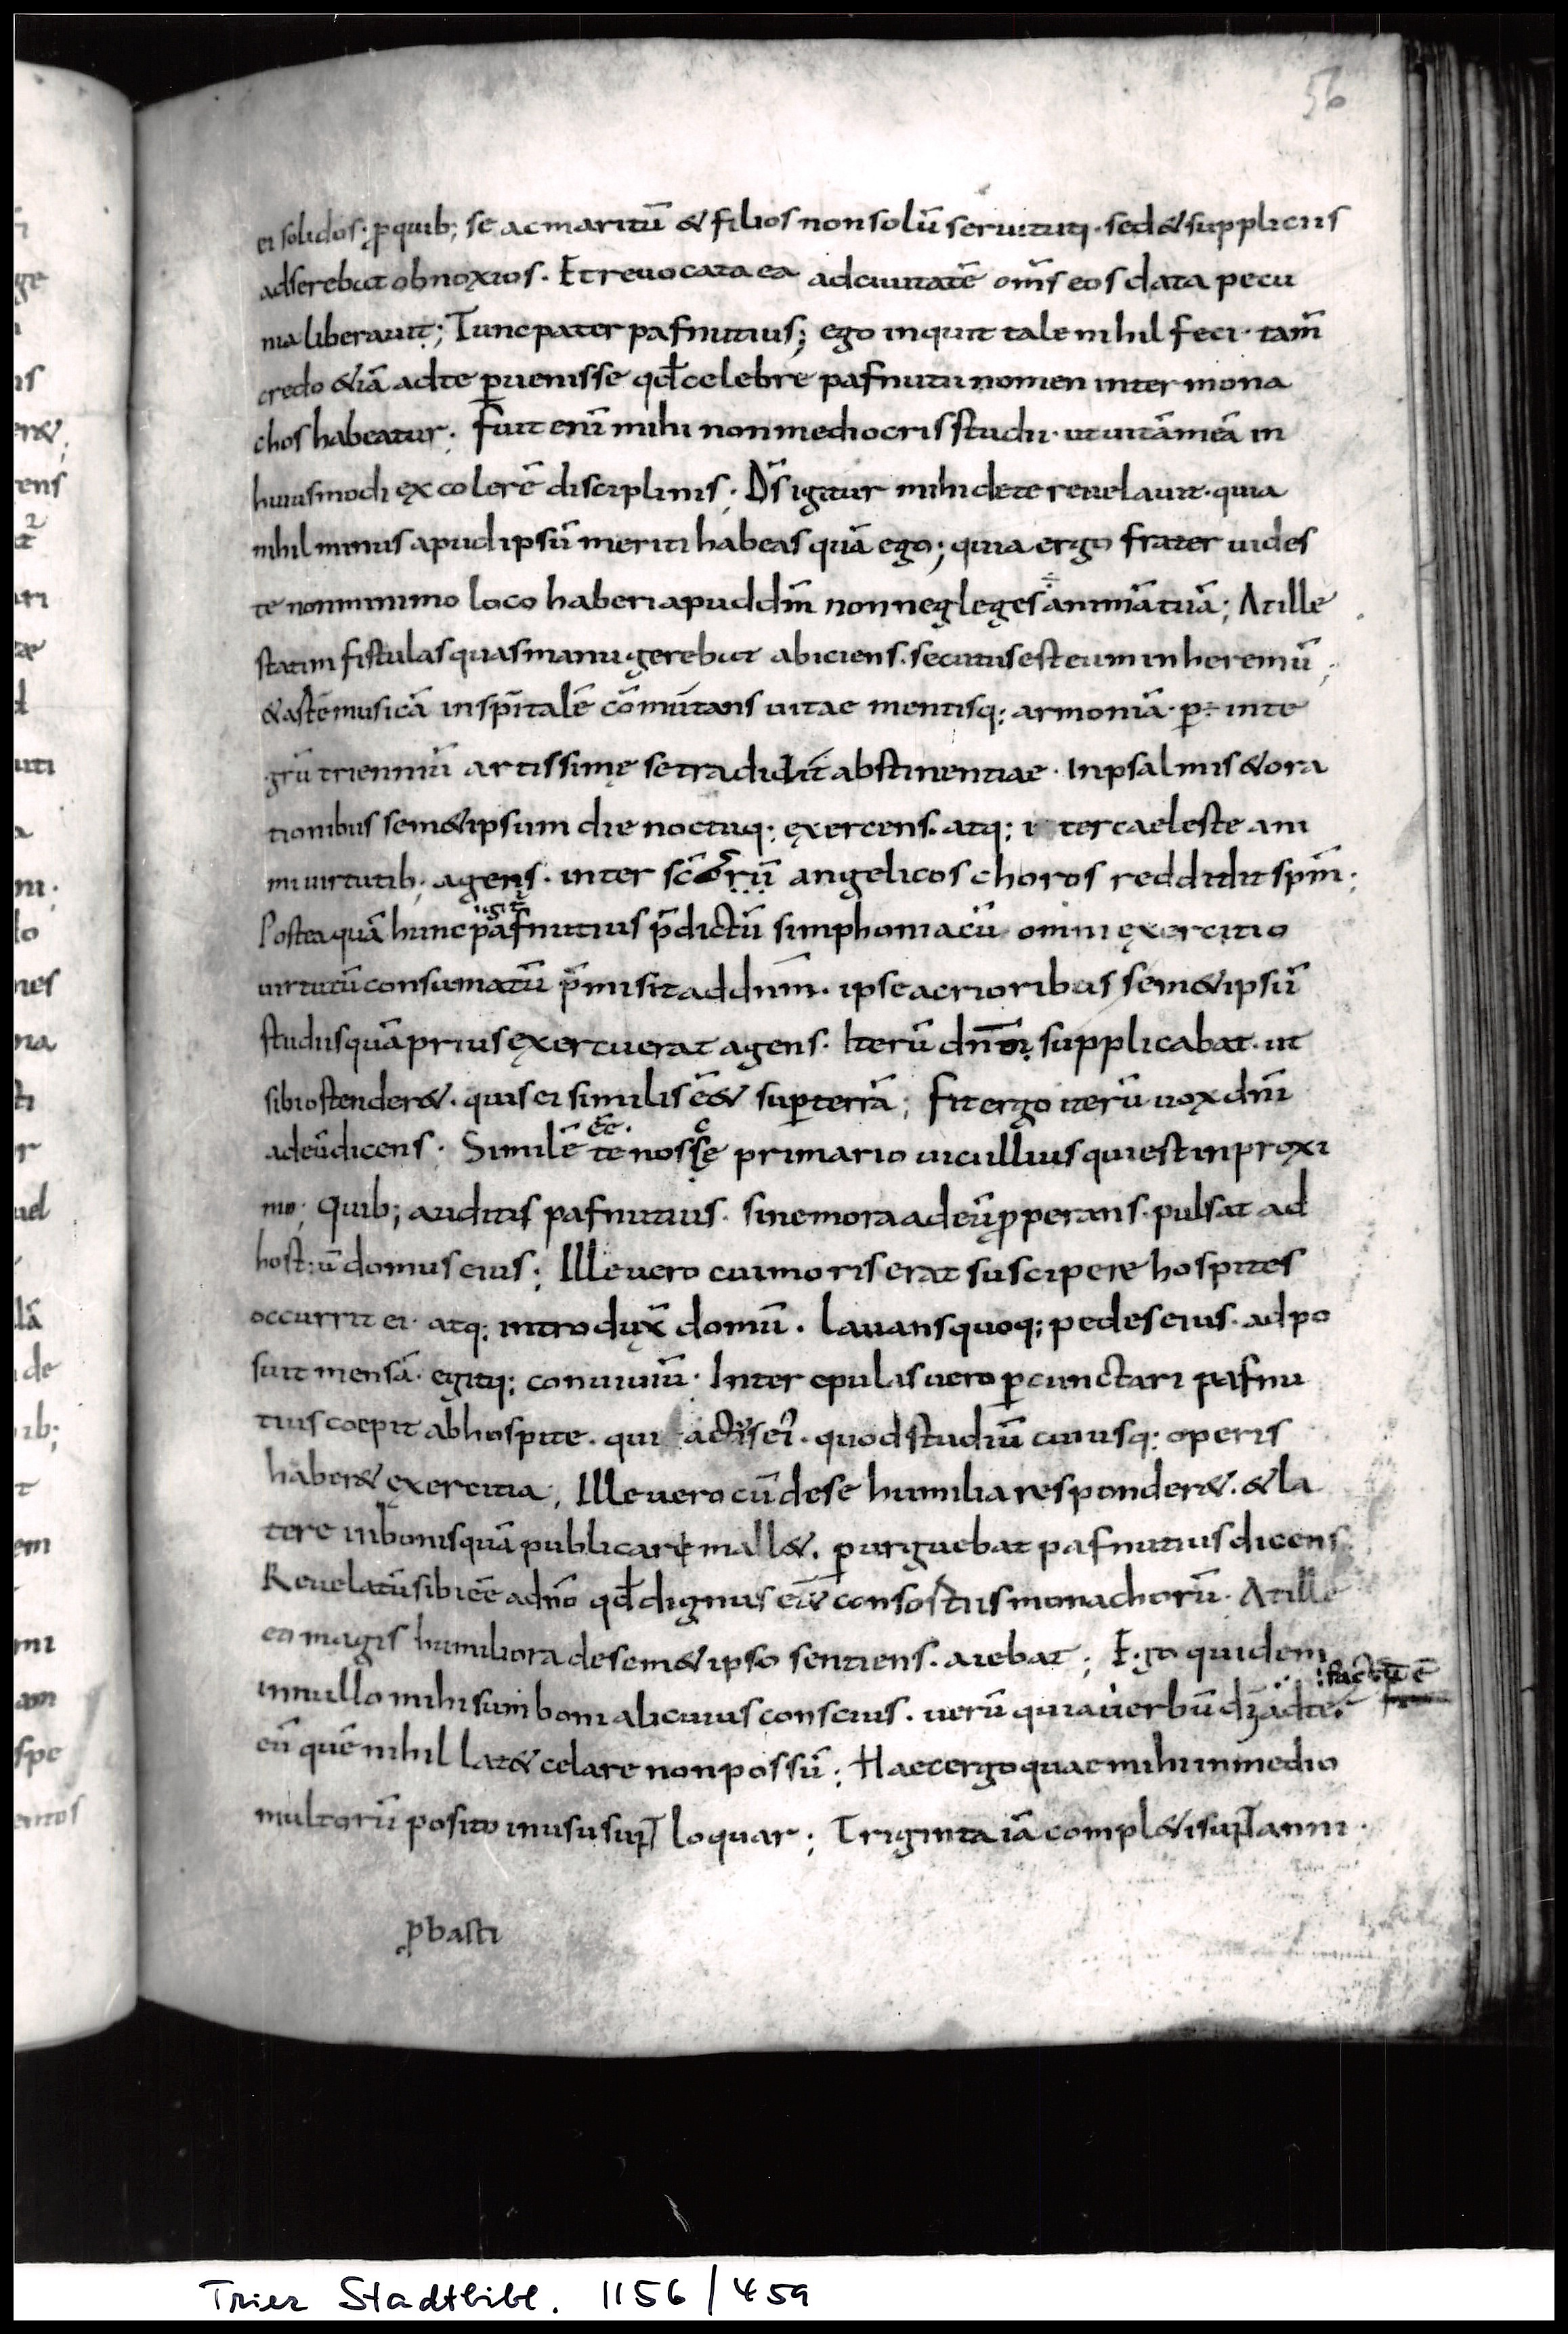 56
ei solidos· ꝓ quib; se ac maritū & filios non solū seruitutiq· sed & suppliciis
adserebat obnoxios· Et reuocata ea ad ciuitatē om̄s eos data pecu
nia liberauit; Tunc pater pafnutius; ego inquit tale nihil feci· tam̄
credo &iā ad te ꝑuenisse qđ celebre pafnutii nomen inter mona
chos habeatur; Fuit enī mihi non mediocris studii· ut uitā meā in
huiusmodi excolerē disciplinis; D̄s igitur mihi de te reuelauit· quia
nihil minus apud ipsū meriti habeas quā ego; quia ergo frater uides
te non minimo loco haberi apud dm̄ non negleges animā tuā; At ille
statim fistulas quas manu gerebat abiciens· secutus est eum in heremū;
& astē musicā in spiritalē cōmutans uitae mentisq; armoniā· ꝑ inte
grū trienniū artissimę se tradidit abstinentiae· In psalmis & ora
tionibus sem&ipsum die noctuq; exercens· atq; i ter caeleste ani
mi uirtutib; agens· inter sc̄orū angelicos choros reddidit spm̄;
igit̄
Postea quā hunc pafnutius p̄dictū simphoniacū omni exercitio
uirtutū consumatū p̄misit ad dnm̄· ipse acrioribus sem&ipsū
studiis quā prius exercuerat agens· Iterū dn̄m supplicabat· ut
sibi ostender&· quis ei similis ēē& suꝑ terrā; Fit ergo iterū uox dnī
ad eū dicens· Similē te nosse primario uici illius qui est in proxi
ēē·
mo; Quib; auditis pafnutius· sine mora ad eū ꝓperans· pulsat ad
hostiū domus eius; Ille uero cui moris erat suscipere hospites
occurrit ei· atq; introdux̄ domū· lauans quoq; pedes eius· adpo
suit mensā· egitq; conuiuiū· Inter epulas uero ꝑcunctari pafnu
tius coepit ab hospite· qui actus ei· quod studiū cuiusq; operis
haber& exercitia; Ille uero cū de se humilia responder&· & la
tere in bonis quā publicari mall&· ꝑurguebat pafnutius dicens
Reuelatū sibi ēē a dnō qđ dignus ēē& consortiis monachorū· At ille
eo magis humiliora de sem&ipso sentiens· aiebat; Ego quidem
factū ē
in nullo mihi sum boni alicuius conscius· uerū quia uerbū dī ad te·
eū quē nihil lat& celare non possū; Haec ergo quae mihi in medio
multorū posito in usu sunt loquar; Triginta iā compl&i sunt anni·
ꝓbasti
Trier Stadtbibl. 1156/459